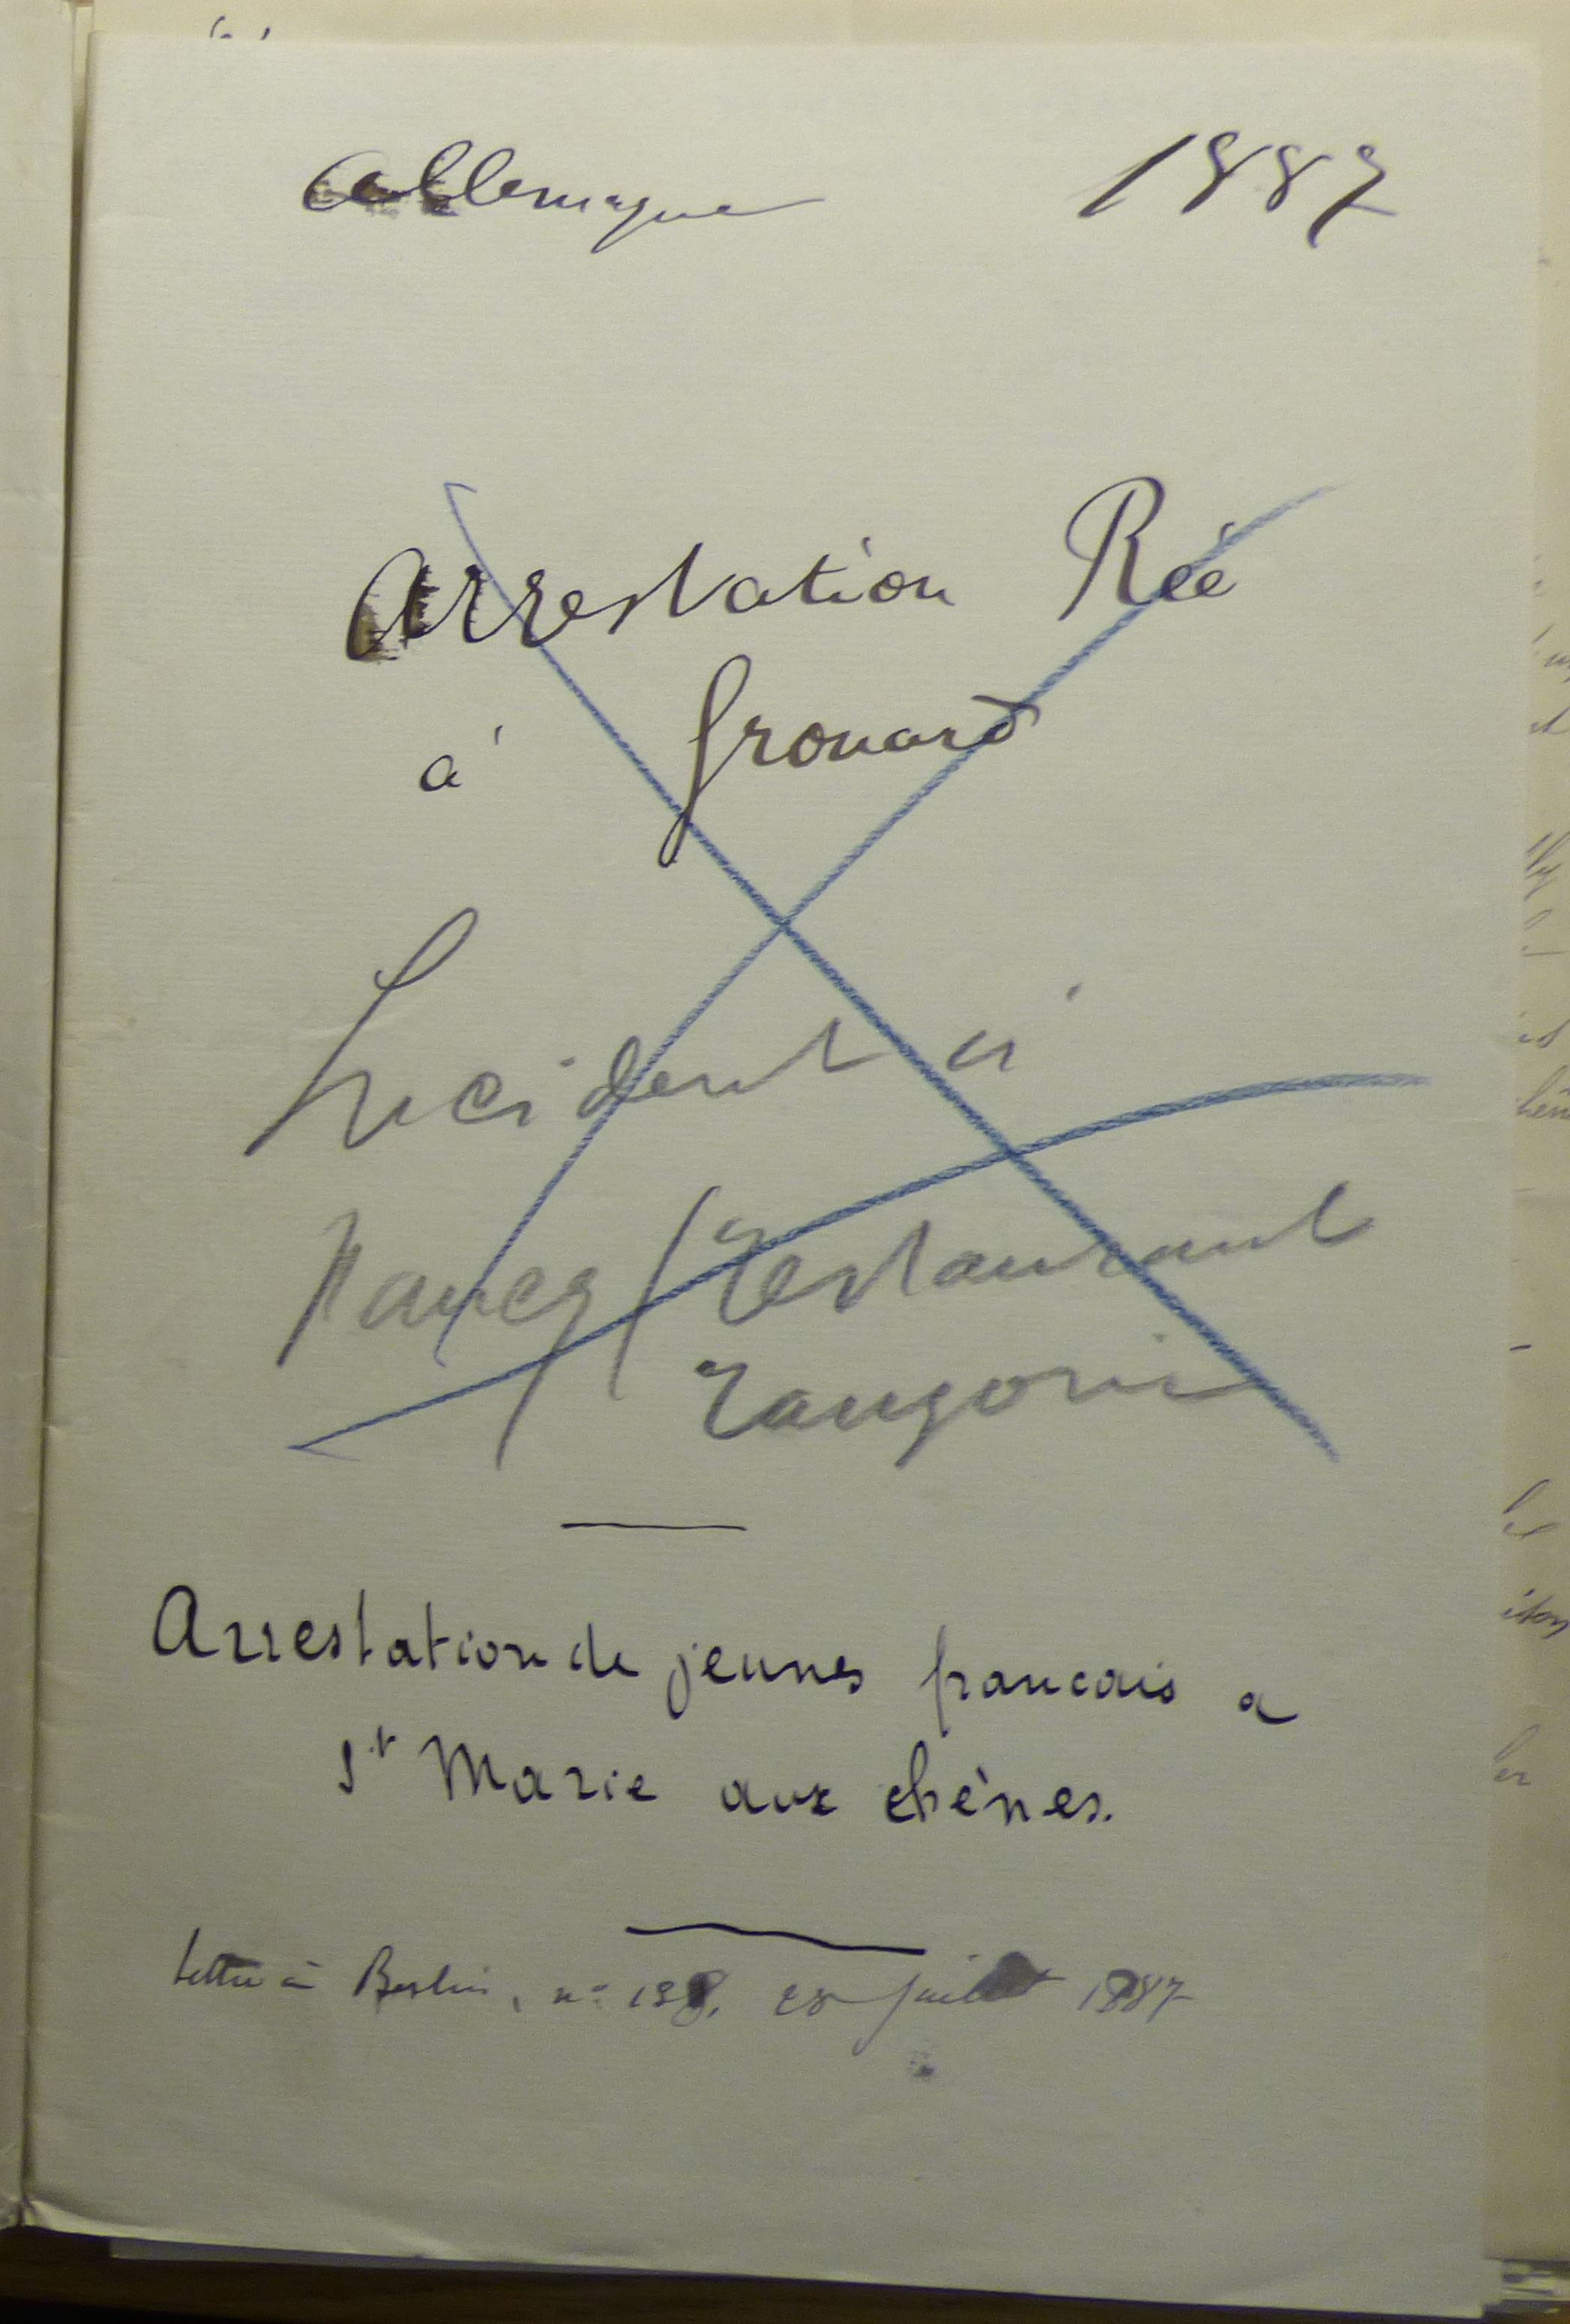 Allemagne 1887
Arrestation Rée
à frouard
Incident à
Nancy / restaurant
Zangoni
Arrestation de jeunes francais a
St Marie aux chênes.
Lettre à Berlin, n° 138, 28 juillet 1887